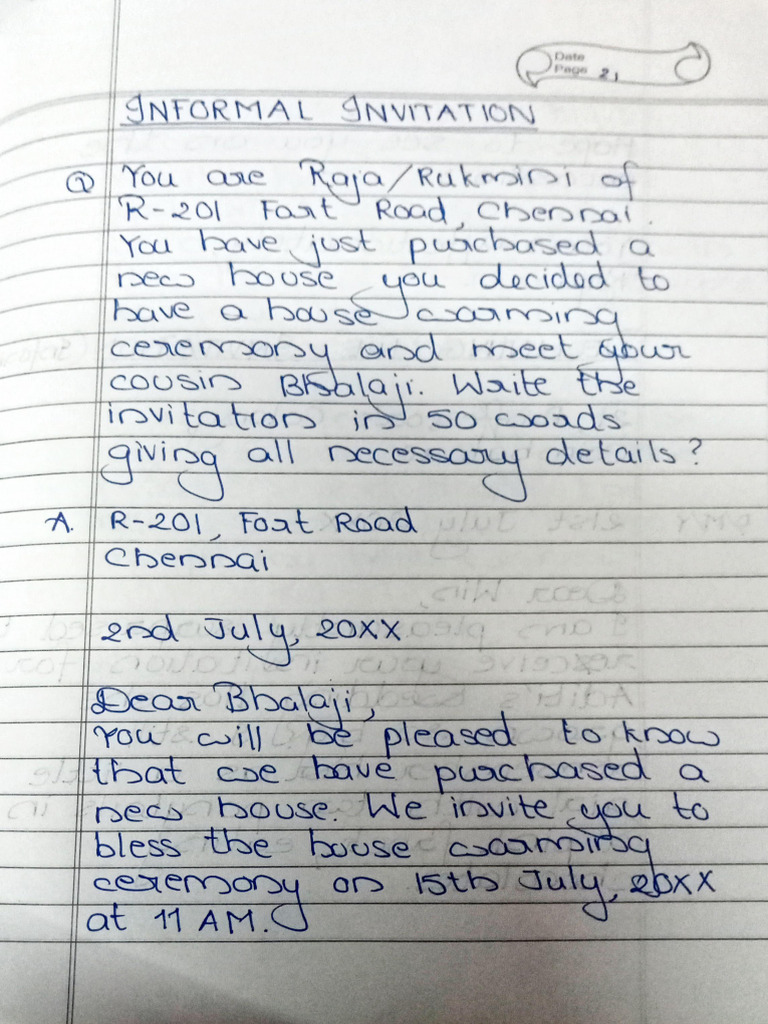 Date
Page 21
INFORMAL INVITATION
Q You are Raja/Rukmini of
R-201 Fort Road, Chennai.
You have just purchased a
new house you decided to
have a house warming
ceremony and meet your
cousin Bhalaji. Write the
invitation in 50 words
giving all necessary details?
A. R-201, Fort Road
Chennai
2nd July, 20XX
Dear Bhalaji,
You will be pleased to know
that we have purchased a
new house. We invite you to
bless the house warming
ceremony on 15th July, 20XX
at 11 AM.